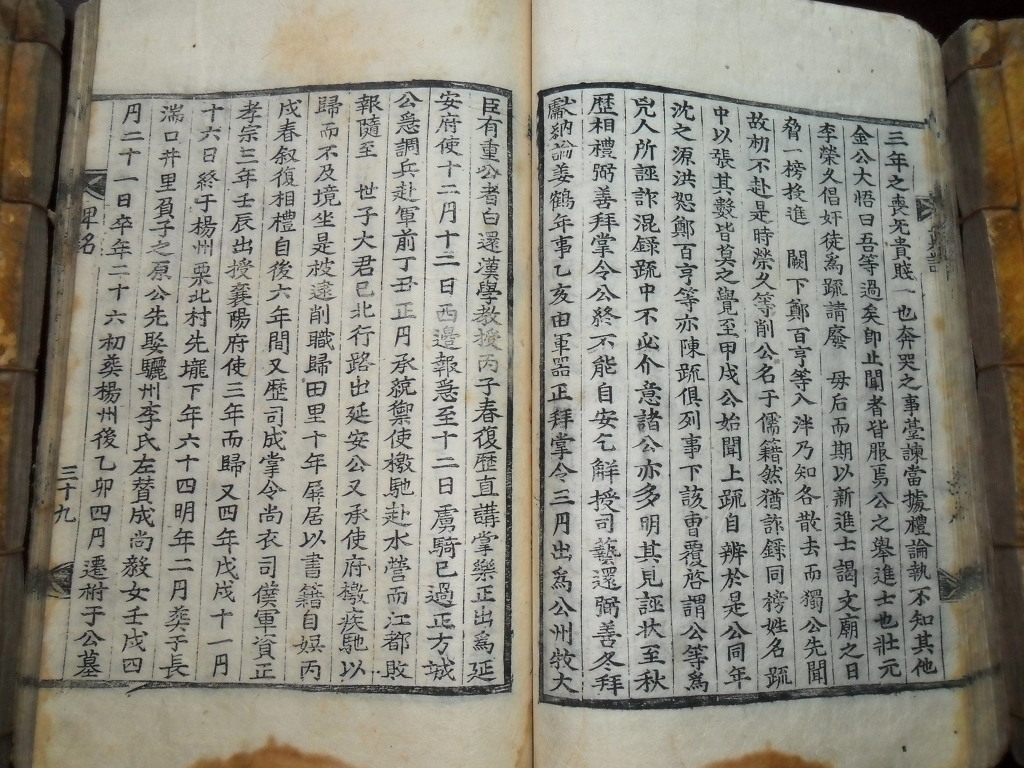 三年之喪无貴賤一也奔哭之事䑓諫當據禮論執不知其他
金公大悟曰吾等過矣卽止聞者皆服焉公之擧進士也壯元
李榮久倡奸徒爲疏請廢 母后而期以新進士謁文廟之日
脅一榜投進 闕下鄭百亨等入泮乃知各散去而獨公先聞
故初不赴是時榮久等削公名于儒籍然猶詐錄同榜姓名疏
中以張其數皆莫之覺至甲戌公始聞上疏自辨於是公同年
沈之源洪恕鄭百亨等亦陳疏俱列事下該曺覆啓謂公等爲
兇人所誣詐混錄疏中不必介意諸公亦多明其見誣状至秋
歷相禮弼善拜掌令公終不能自安乞觧授司藝還弼善冬拜
獻納論姜鶴年事乙亥由軍器正拜掌令三円出爲公州牧大
臣有重公者白還漢學敎授丙子春復歷直講掌樂正出爲延
安府使十二月十二日西邊報急至十二日虜騎已過正方城
公急調兵赴軍前丁丑正円承統禦使檄馳赴水營而江都敗
報隨至 世子大君已北行路出延安公又承使府檄疾馳以
歸而不及境坐是枝逮削職歸田里十年屛居以書籍自娛丙
戌春叙復相禮自後六年間又歷司成掌令尚衣司僕軍資正
孝宗三年壬辰出授襄陽府使三年而歸又四年戊戌十一円
十六日終于楊州栗北村先壠下年六十四明年二円葬于長
湍口井里負子之原公先娶驪州李氏左賛成尚毅女壬戌四
円二十一日卒年二十六初葬楊州後乙卯四円遷祔于公墓
碑名
三十九